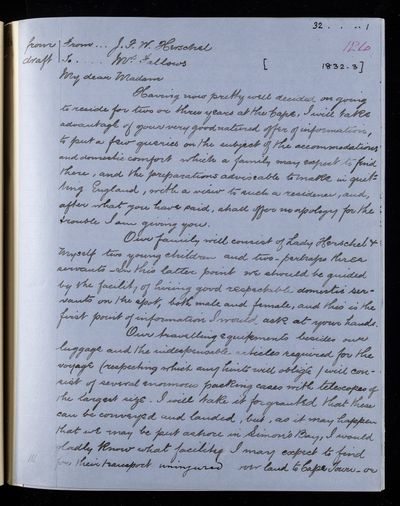 32 . . . . . 1
from From... J. F. W. Herschel 186
draft To..... Mrs. Fallows [ 1832-3]
My dear Madam
Having now pretty well decided on going
to reside for two or three years at the Cape, I will take
advantage of your very good natured offer of information,
to put a few queries on the subject of the accommodations
and domestic comfort which a family may expect to find
there, and the preparations adviseable to make in quit-
ting England, with a view to such a residence, and,
after what you have said, shall offer no apology for the
trouble I am giving you.
Our family will consist of Lady Herschel &
myself two young children and two - perhaps three
servants - In this latter point we should be guided
by the facility of hiring good respectable domestic ser-
vants on the spot, both male and female, and this is the
first point of information I would ask at your hands.
Our travelling equipments besides our
luggage and the indispensable articles required for the
voyage (respecting which any hints will oblige) will con-
sist of several enormous packing cases with telescopes of
the largest size. I will take it for granted that these
can be conveyed and landed, but, as it may happen
that we may be put ashore in Simon's Bay, I would
gladly know what facilities I may expect to find
for their transport uninjured over land to Cape Town - or